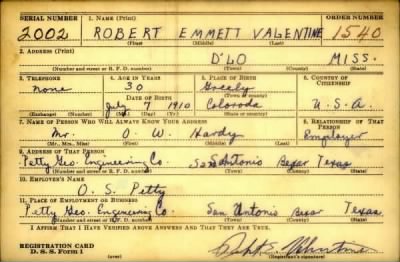 SERIAL NUMBER 1. NAME (Print) ORDER NUMBER
2002 ROBERT EMMETT VALENTINE 1540
(First) (Middle) (Last)
2. ADDRESS (Print)
D'LO MISS.
(Number and street or R. F. D. number) (Town) (County) (State)
3. TELEPHONE 4. AGE IN YEARS 5. PLACE OF BIRTH 6. COUNTRY OF CITIZENSHIP
None 30 Greely
DATE OF BIRTH (Town or county)
July 7 1910 Colorado U.S.A.
(Exchange) (Number) (Mo.) (Day) (Yr.) (State or country)
7. NAME OF PERSON WHO WILL ALWAYS KNOW YOUR ADDRESS 8. RELATIONSHIP OF THAT PERSON
Mr. O. W. Hardy Employer
(Mr., Mrs., Miss) (First) (Middle) (Last)
9. ADDRESS OF THAT PERSON
Petty Geo. Engineering Co. San Antonio Bexar Texas
(Number and street or R. F. D. number) (Town) (County) (State)
10. EMPLOYER'S NAME
O. S. Petty
11. PLACE OF EMPLOYMENT OR BUSINESS
Petty Geo. Engineering Co. San Antonio Bexar Texas
(Number and street or R. F. D. number) (Town) (County) (State)
I AFFIRM THAT I HAVE VERIFIED ABOVE ANSWERS AND THAT THEY ARE TRUE.
REGISTRATION CARD
D. S. S. Form 1 (over) (Registrant's signature)